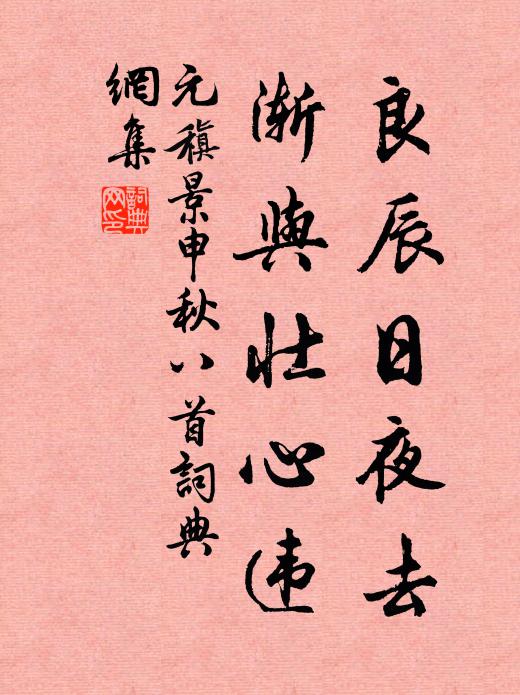 良辰日夜去
渐與壮心违
元稹景申秋八首詞典
網集
詞典
网印